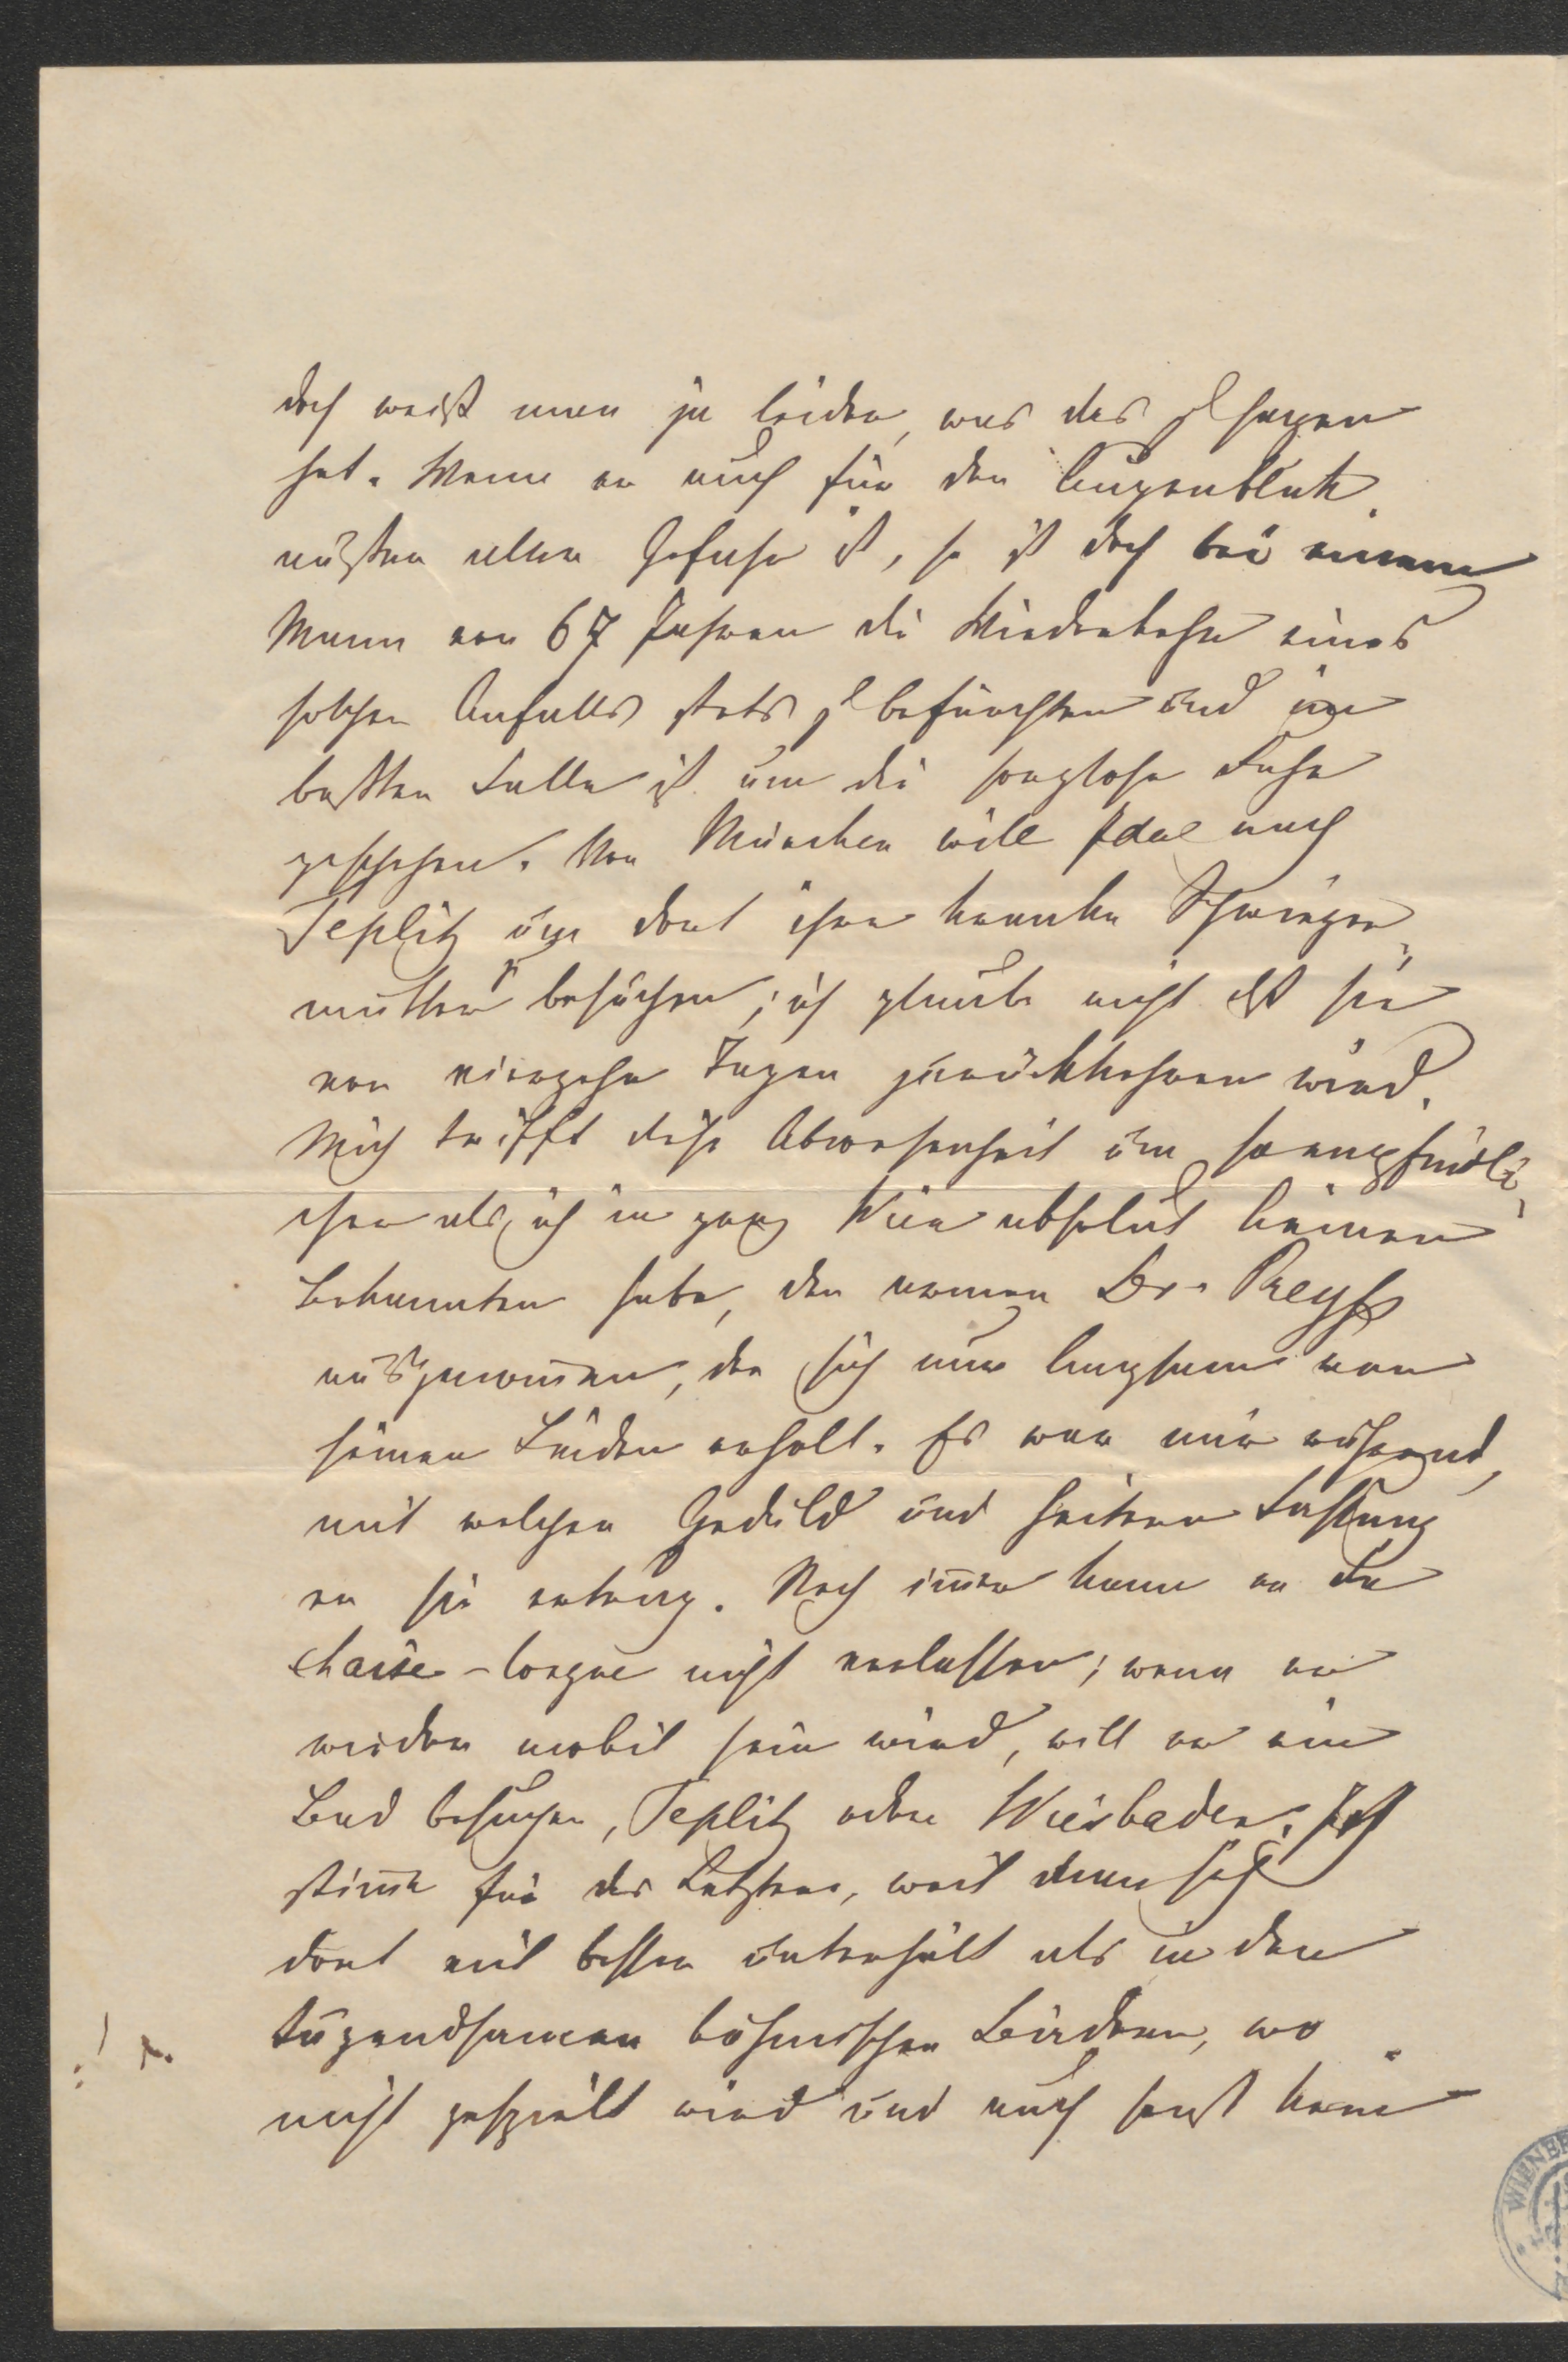 doch weißt man ja leider, was das z sagen
hat. Wenn er auch für den Augenblick
außer aller Gefahr ist, so ist doch bei einem
Mann von 67 Jahren die Wiederkehr eines
solchen Anfalls stets z befürchten und im
besten Falle ist um die sorglose Ruhe
geschehen. Von München will Ida nach
Teplitz um dort ihre kranke Schwieger
mutter z besuchen; ich glaube nicht dß sie
vor vierzehn Tagen zurückkehren wird.
Mich trifft diese Abwesenheit um so empfindli
cher als ich in ganz Wien absolut keinen
Bekannten habe, den armen Dr. Reyß
ausgenom̄en, der sich nur langsam von
seinen Leiden erholt. Es war mir rührend,
mit welcher Geduld und heiterer Fassung
er sie ertrug. Noch im̄er kann er die
chaise-longue nicht verlassen; wenn er
wieder mobil sein wird, will er ein
Bad besuchen, Teplitz oder Wiesbaden. Ich
stim̄e für das Letztere, weil man sich
dort viel besser unterhält als in den
tugendsamen böhmischen Bädern, wo
nicht gespielt wird und auch sonst kein
WIENER